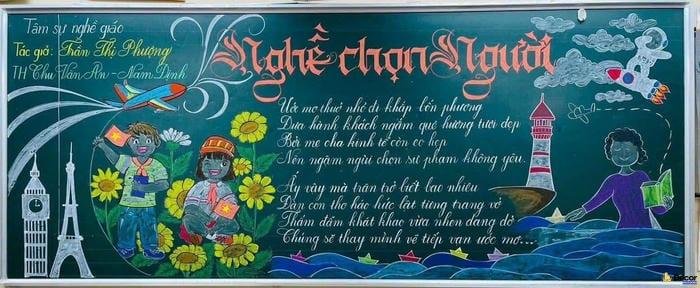 Tâm sự nghề giáo
Tác giả: Trần Thị Phượng
TH Chu Văn An - Nam Định
Nghề chọn Người
Ước mơ thuở nhỏ đi khắp bốn phương
Đưa hành khách ngắm quê hương tươi đẹp
Bởi mẹ cha kinh tế còn eo hẹp
Nên ngậm ngùi chọn sư phạm không yêu.
Ấy vậy mà trăn trở biết bao nhiêu
Đàn con thơ háo hức lật từng trang vở
Thấm đẫm khát khao vừa nhen dang dở
Chúng sẽ thay mình vẽ tiếp vạn ước mơ...
Decor